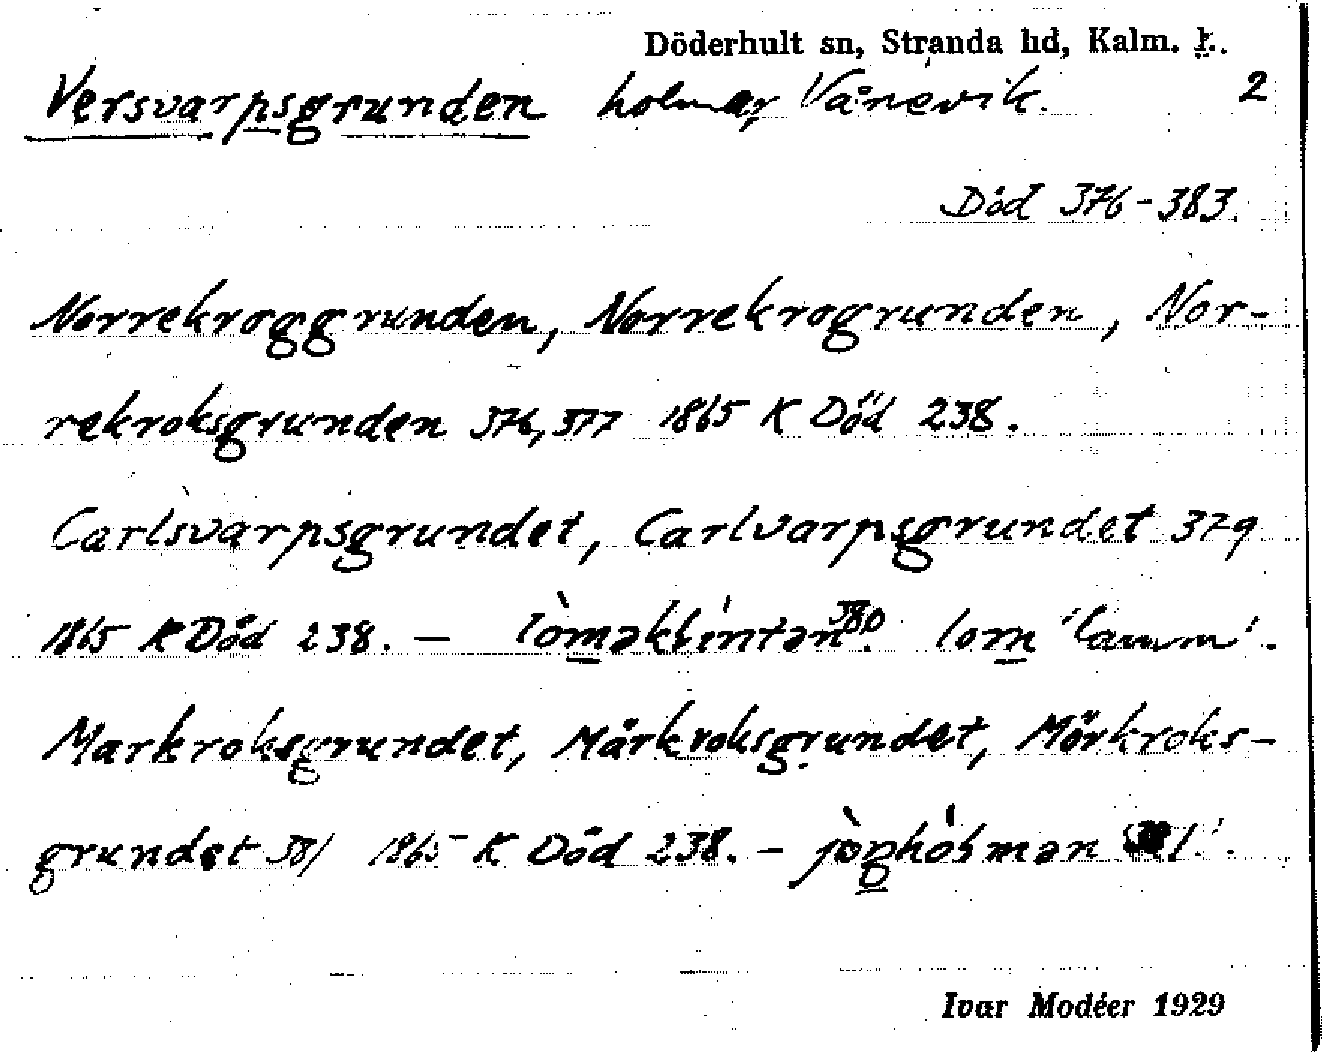 Döderhult sn, Stranda hd, Kalm. l.
Versvarpsgrunden holmar, Vånevik. 2
Död 376-383.
Norrekroggrunden, Norrekrogrunden, Nor-
rekroksgrunden 376,377 1865 K Död 238.
Carlsvarpsgrundet, Carlvarpsgrundet 379
1865 K Död 238. — lòməklíntən 380. lom 'lamm'.
Markroksgrundet, Mårkroksgrundet, Mörkroks-
grundet 381 1865 K Död 238. — jòghólmən
Ivar Modéer 1929